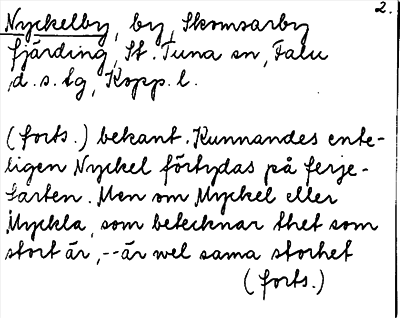 2.
Nyckelby, by, Skomsarby
fjärding, St. Tuna sn, Falu
d.s. tg, Kopp. l.
(forts.) bekant. Kunnandes ente-
ligen Nyckel förtydas på ferje-
farten. Men om Myckel eller
Myckla, som betecknar thet som
stort är, -- är wel sama storhet
(forts.)